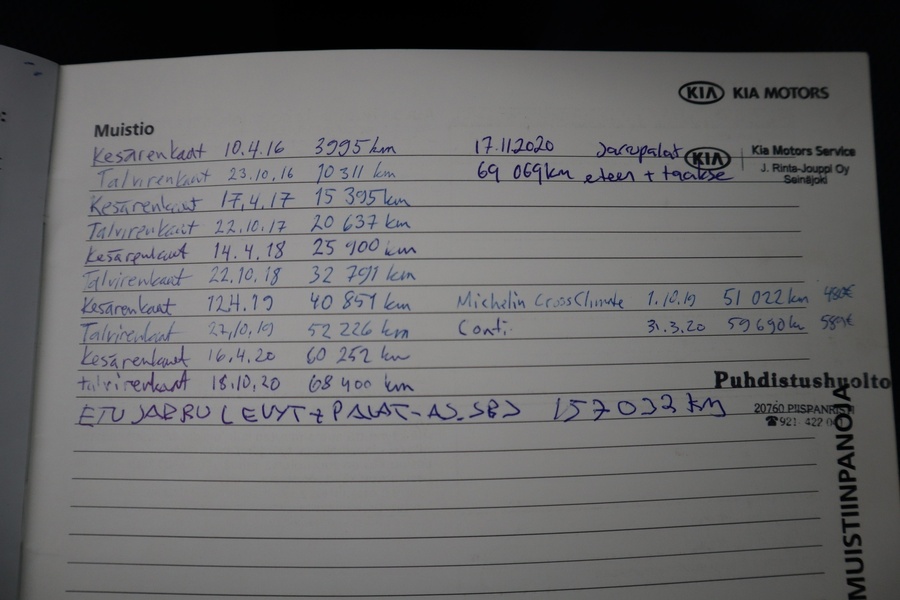 KIA KIA MOTORS
Muistio
Kesärenkaat 10.4.16 3995 km 17.11.2020 Jarrupalat
KIA Kia Motors Service
J. Rinta-Jouppi Oy
Seinäjoki
Talvirenkaat 23.10.16 10 311 km 69 069km eteen + taakse
Kesärenkaat 17.4.17 15 395 km
Talvirenkaat 22.10.17 20 637 km
Kesärenkaat 14.4.18 25 900 km
Talvirenkaat 22.10.18 32 791 km
Kesärenkaat 12.4.19 40 851 km Michelin CrossClimate 1.10.19 51 022 km 480€
Talvirenkaat 27.10.19 52 226 km Conti. 31.3.20 59 690 km 589€
Kesärenkaat 16.4.20 60 252 km
talvirenkaat 18.10.20 68 400 km
Puhdistushuolto
ETU JARRU LEVYT + PALAT-AS.SBS 157 032 km
20760 PIISPANRISTI
☎921- 422
MUISTIINPANOJA